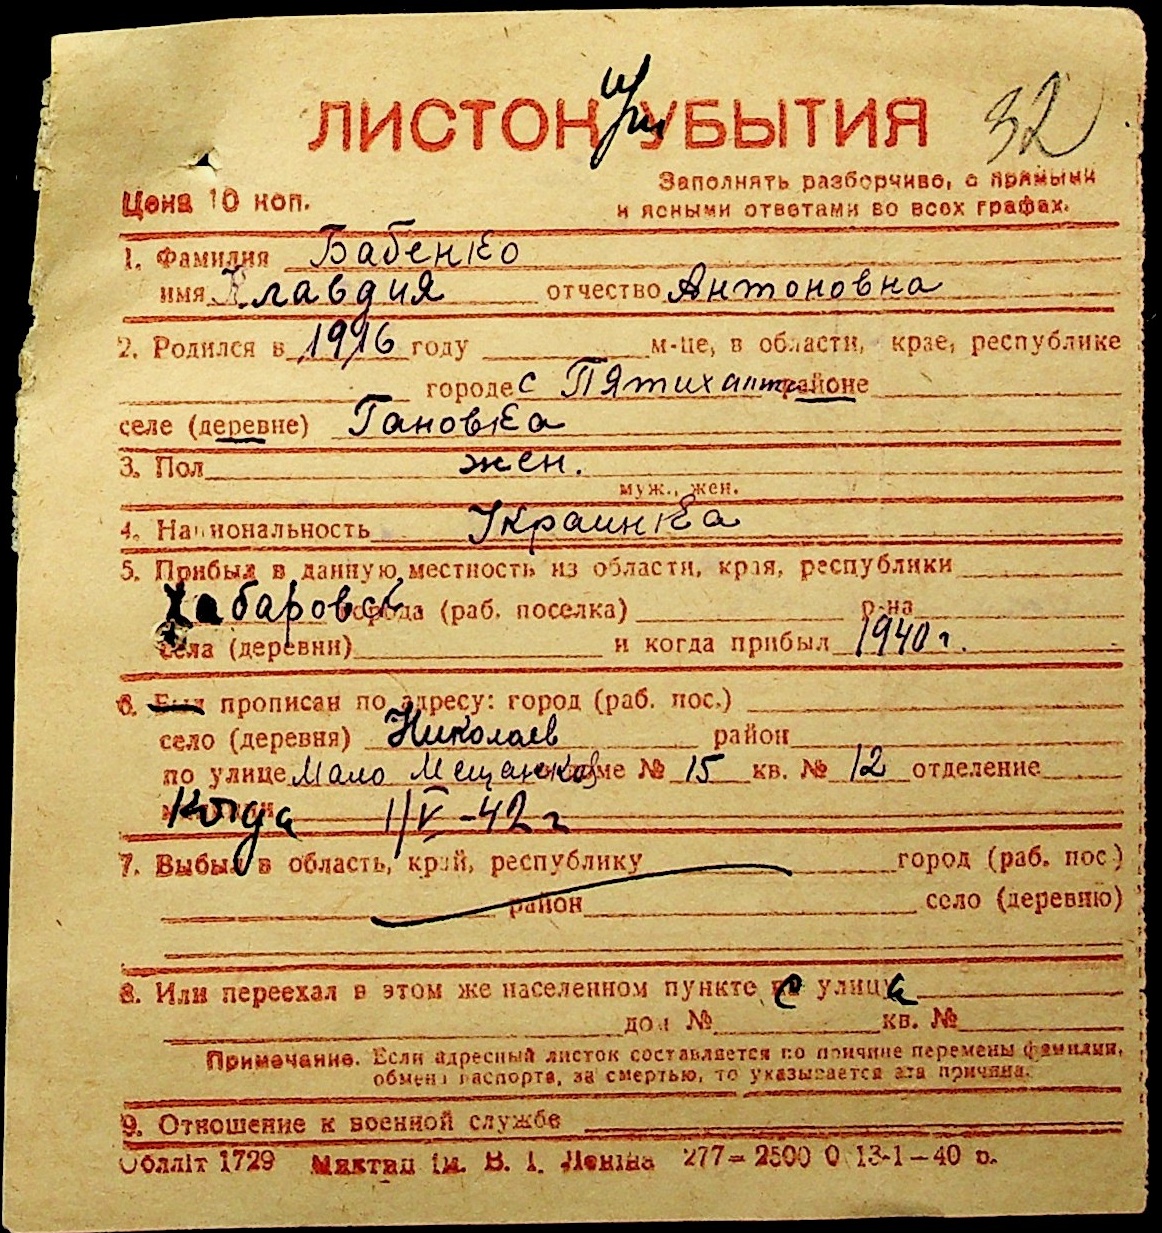 ЛИСТОК УБЫТИЯ
при
32
Цена 10 коп.
Заполнять разборчиво, с прямыми
и ясными ответами во всех графах.
1. Фамилия Бабенко
имя Клавдия отчество Антоновна
2. Родился в 1916 году м-це, в области, крае, республике
городе с Пятихат районе
селе (деревне) Гановка
3. Пол жен.
муж., жен.
4. Национальность Украинка
5. Прибыл в данную местность из области, края, республики
Хабаровск города (раб. поселка) р-на
села (деревни) и когда прибыл 1940 г.
6. Был прописан по адресу: город (раб. пос.)
село (деревня) Николаев район
по улице Мало Мещанков доме № 15 кв. № 12 отделение
Когда 1/V-42 г
7. Выбыл в область, край, республику город (раб. пос.)
район село (деревню)
8. Или переехал в этом же населенном пункте с улица
дом № кв. №
Примечание. Если адресный листок составляется по причине перемены фамилии,
обмена паспорта, за смертью, то указывается эта причина.
9. Отношение к военной службе
Облліт 1729 ім. В. І. Леніна 277—2500 0 13-1—40 р.